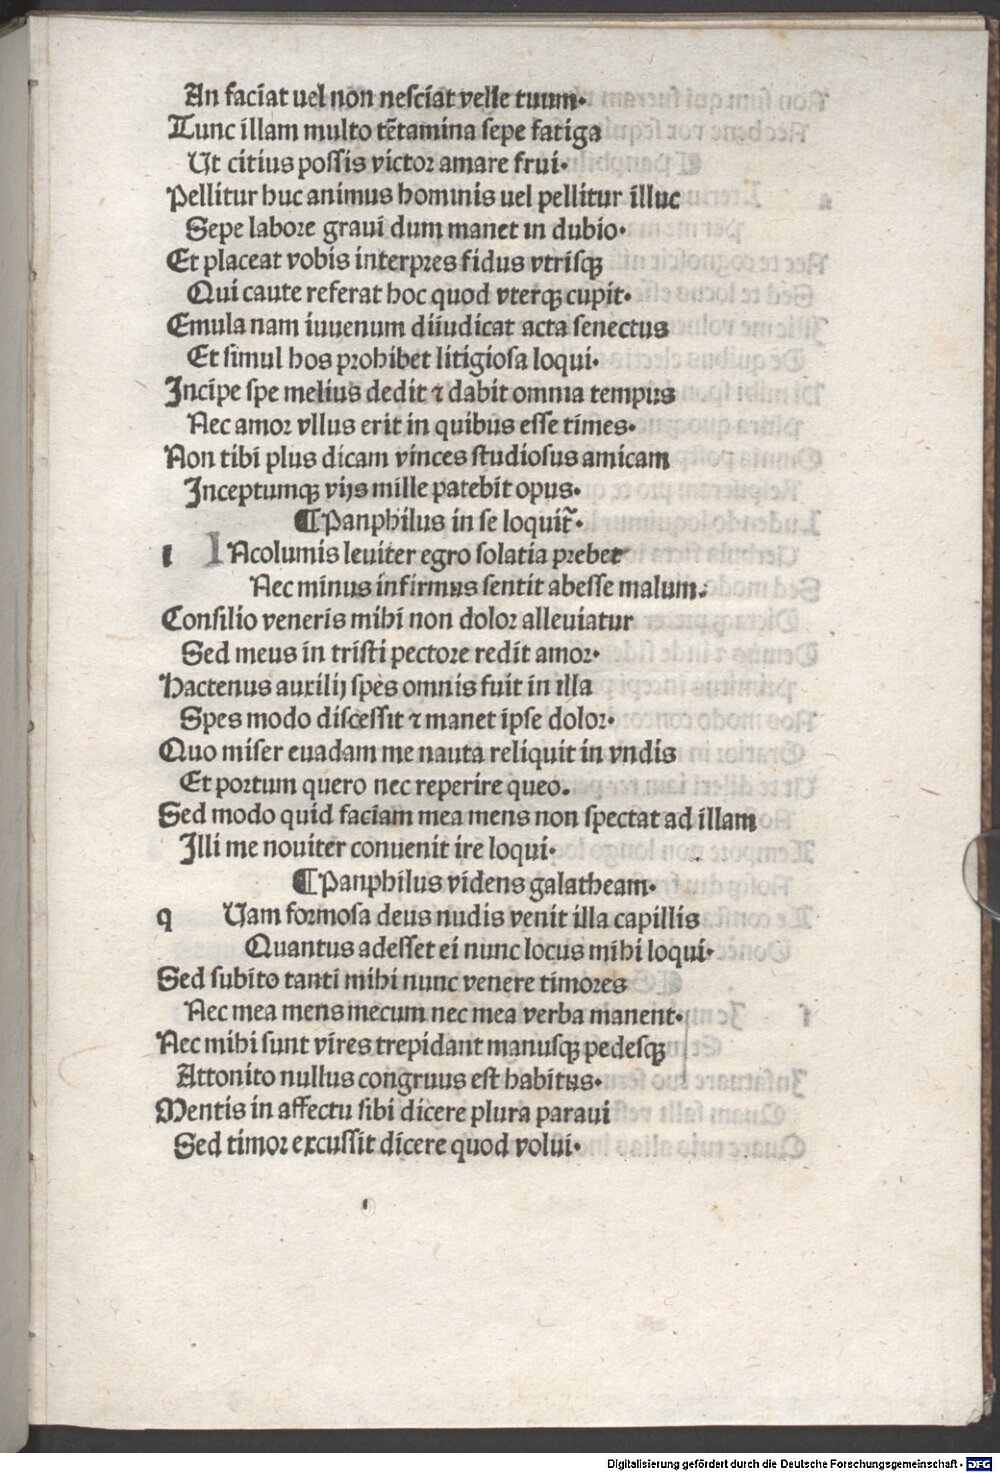 An faciat uel non nesciat velle tuum.
Tunc illam multo tẽtamina sepe fatiga
Ut citius possis victor amare frui.
Pellitur huc animus hominis uel pellitur illuc
Sepe labore graui dum manet in dubio.
Et placeat vobis interpres fidus vtrisqꝫ
Qui caute referat hoc quod vterqꝫ cupit.
Emula nam iuuenum diiudicat acta senectus
Et simul hos prohibet litigiosa loqui.
Incipe spe melius dedit ⁊ dabit omnia tempus
Nec amor vllus erit in quibus esse times.
Non tibi plus dicam vinces studiosus amicam
Inceptumqꝫ vijs mille patebit opus.
¶Panphilus in se loquit̃.
i Acolumis leuiter egro solatia prebet
Nec minus infirmus sentit abesse malum.
Consilio veneris mihi non dolor alleuiatur
Sed meus in tristi pectore redit amor.
Hactenus auxilij spes omnis fuit in illa
Spes modo discessit ⁊ manet ipse dolor.
Quo miser euadam me nauta reliquit in vndis
Et portum quero nec reperire queo.
Sed modo quid faciam mea mens non spectat ad illam
Illi me nouiter conuenit ire loqui.
¶Panphilus videns galatheam.
q Uam formosa deus nudis venit illa capillis
Quantus adesset ei nunc locus mihi loqui.
Sed subito tanti mihi nunc venere timores
Nec mea mens mecum nec mea verba manent.
Nec mihi sunt vires trepidant manusqꝫ pedesqꝫ
Attonito nullus congruus est habitus.
Mentis in affectu sibi dicere plura paraui
Sed timor excussit dicere quod volui.
Digitalisierung gefördert durch die Deutsche Forschungsgemeinschaft - DFG